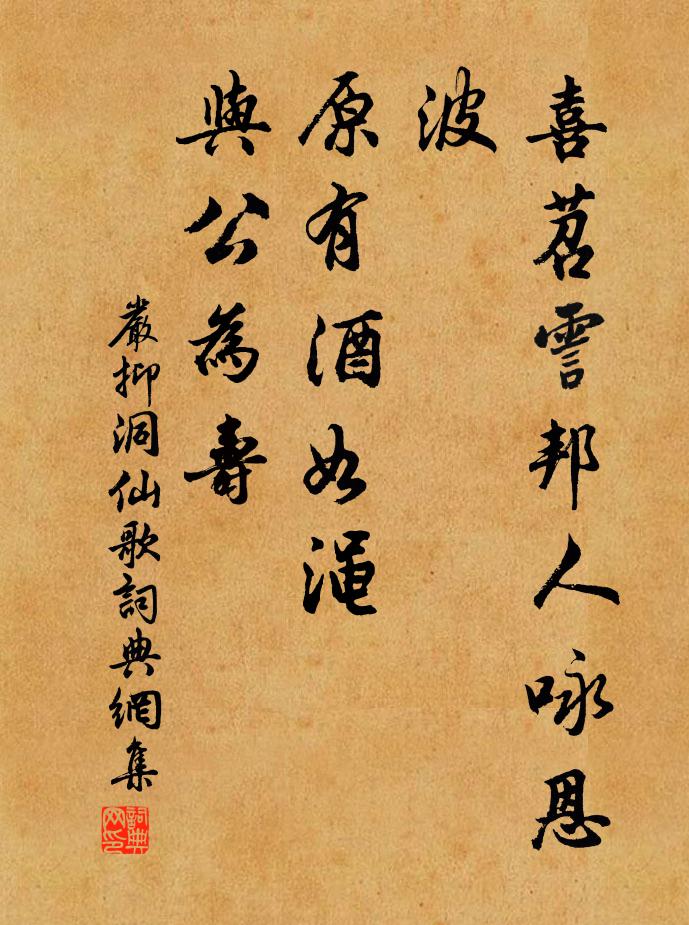 喜苕霅邦人咏恩
波
原有酒如渑
與公為壽
嚴抑洞仙歌詞典網集
詞典网印